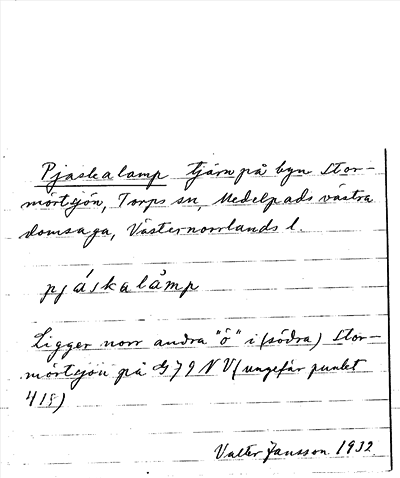 Pjaskalamp tjärn på byn Stor-
mörtsjön, Torps sn, Medelpads västra
domsaga, Västernorrlands l.
pjáskalåmp
Ligger norr andra "ö" i (södra) Stor-
mörtsjön på G 79 NV (ungefär punkt
418)
Valter Jansson 1932